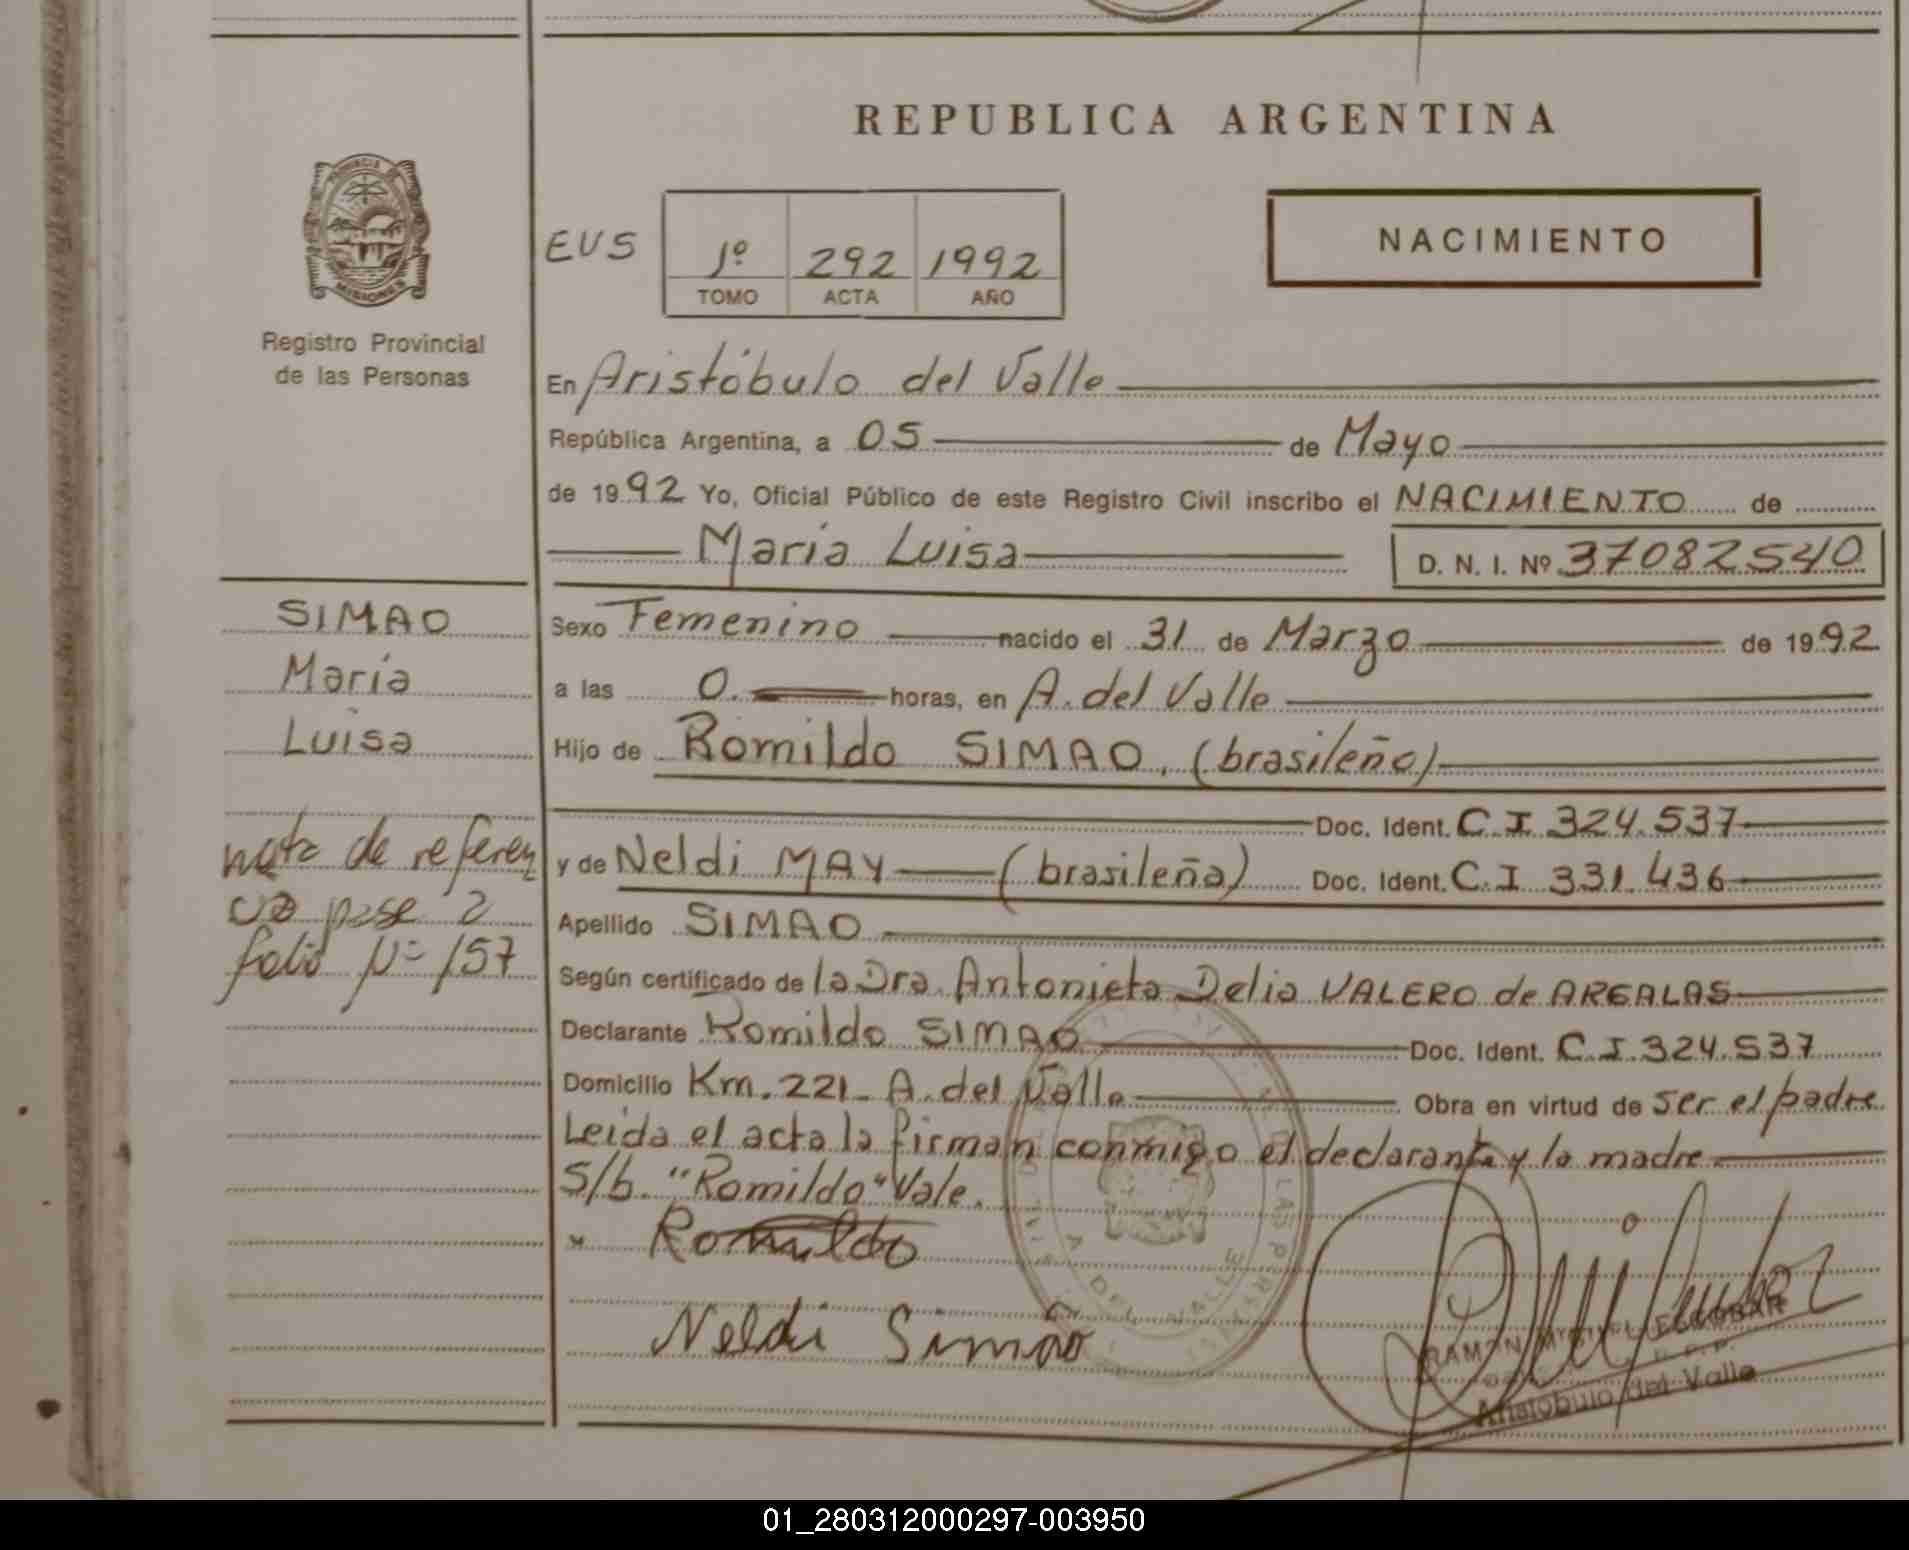 REPUBLICA ARGENTINA
PROVINCIA
MISIONES
Registro Provincial
de las Personas
EUS
1º 292 1992
TOMO ACTA AÑO
NACIMIENTO
En Aristóbulo del Valle
República Argentina, a 05 de Mayo
de 1992 Yo, Oficial Público de este Registro Civil inscribo el NACIMIENTO de
María Luisa D. N. I. Nº 37082540
SIMAO
María
Luisa
nota de referen
cia pase a
folio Nº 157
Sexo Femenino nacido el 31 de Marzo de 1992
a las 0. horas, en A. del Valle
Hijo de Romildo SIMAO, (brasileño)
Doc. Ident. C.I 324.537
y de Neldi MAY (brasileña) Doc. Ident. C.I 331.436
Apellido SIMAO
Según certificado de la Dra. Antonieta Delia VALERO de ARGALAS
Declarante Romildo SIMAO Doc. Ident. C.I.324.537
Domicilio Km. 221_ A. del Valle Obra en virtud de ser el padre
Leida el acta la firman conmigo el declarante y la madre
S/b. "Romildo" Vale.
Romildo
Neldi Simão
A. DEL VALLE
RAMON MIGUEL ESCOBAR
Aristóbulo del Valle
01_280312000297-003950